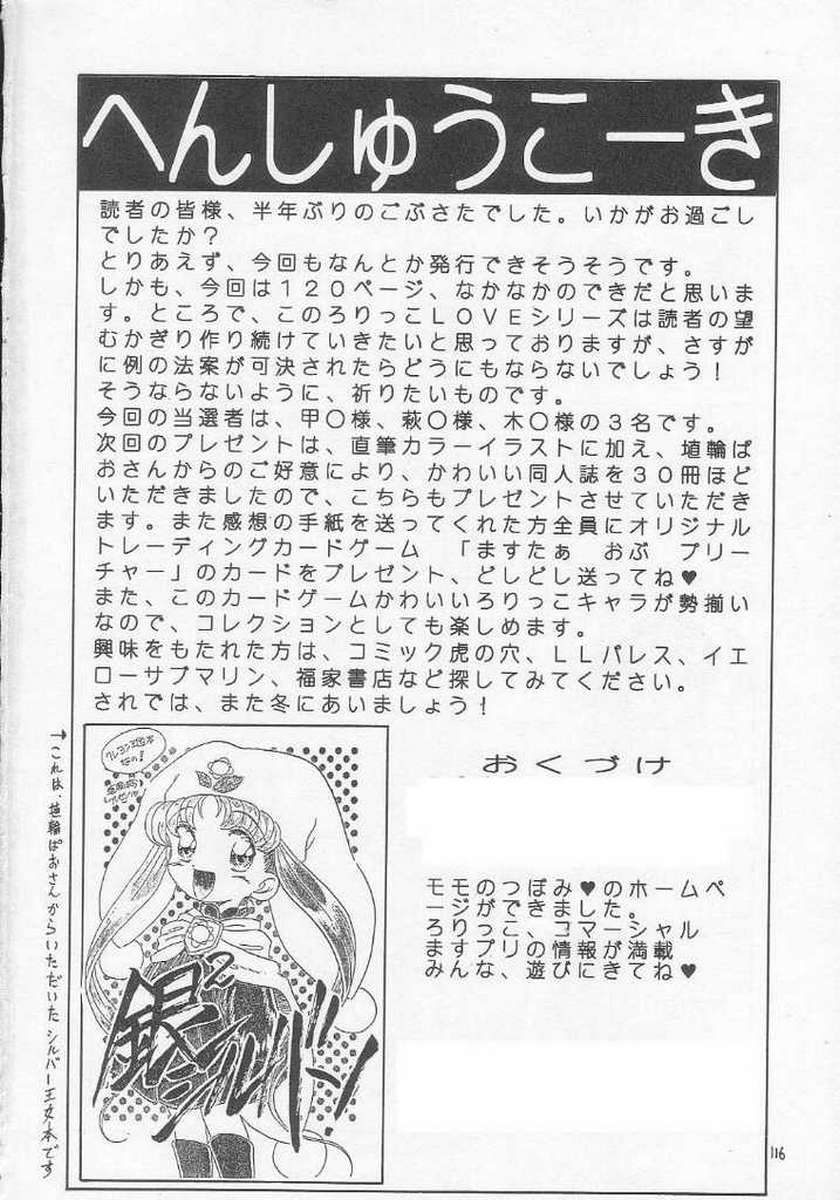 へんしゅうこーき
読者の皆様、半年ぶりのごぶさたでした。いかがお過ごし
でしたか？
とりあえず、今回もなんとか発行できそうそうです。
しかも、今回は１２０ページ、なかなかのできだと思いま
す。ところで、このろりっこＬＯＶＥシリーズは読者の望
むかぎり作り続けていきたいと思っておりますが、さすが
に例の法案が可決されたらどうにもならないでしょう！
そうならないように、祈りたいものです。
今回の当選者は、甲〇様、萩〇様、木〇様の３名です。
次回のプレゼントは、直筆カラーイラストに加え、埴輪ぱ
おさんからのご好意により、かわいい同人誌を３０冊ほど
いただきましたので、こちらもプレゼントさせていただき
ます。また感想の手紙を送ってくれた方全員にオリジナル
トレーディングカードゲーム　「ますたぁ　おぶ　プリー
チャー」のカードをプレゼント、どしどし送ってね♥
また、このカードゲームかわいいろりっこキャラが勢揃い
なので、コレクションとしても楽しめます。
興味をもたれた方は、コミック虎の穴、ＬＬパレス、イエ
ローサブマリン、福家書店など探してみてください。
されでは、また冬にあいましょう！
→これは、埴輪ぱおさんからいただいたシルバー王女本です
銀²シルバーン
おくづけ
モモのつぼみ♥のホームペ
ージができました。
ろりっこ、コマーシャル
ますプリの情報が満載
みんな、遊びにきてね♥
116